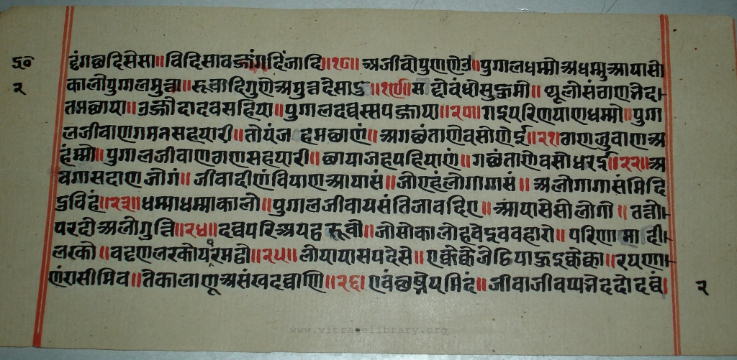 द्दंगछदिसेसा॥विदिसावज्जंगदिंजादि॥१८॥ अजीवोपुणणेउ॥पुग्गलधम्मोअधम्मुआयासो
२ कालोपुग्गलमुत्तो॥रूवादिगुणेअमुत्तसेसाड॥१९॥स द्दोबंधोसुक्कमो॥थूलोसंठाणनेदा
तमछाया॥उज्जोदादवसहिया॥पुग्गलदव्वस्सपज्जाया॥२०॥गइपरिणयाणधम्मो॥पुग्ग
लजीवाणगमनसहयारी॥तोयंजहमछाणं॥अगछंताणेवसोणेई॥२१॥ठाणजुवाणअ
हंम्मो॥पुग्गलजीवाणठाणसहयारी॥छायाजहपहियाणं॥गछंताणेवसोधरई॥२२॥अ
वगासदाणजोगं॥जीवादीणंवियाणआयासं॥जोएहंलोगागासं॥अलोगागासंमिदि
दुविहं॥२३॥धम्माधम्माकालो॥पुग्गलजीवायसंतिजावदिए॥आंयासेसोलोगो॥तत्तो
परदोअलोगुत्ति॥२४॥दव्वपरिअयट्टरूवो॥जोसोकालोहवेइववहारो॥परिणामादी
लरको॥वट्टणलरकोयपरमट्ठो॥२५॥लोयायासपदेसे॥एक्केक्केजेट्ठियाहुइक्केका॥रयणा
णंरासीमिव॥तेकालाणूअसंखदव्वाणि॥२६॥एवंछप्नेयमिदं॥जीवाजीवप्पनेददोदव्वं। २
www.vitragelibrary.org